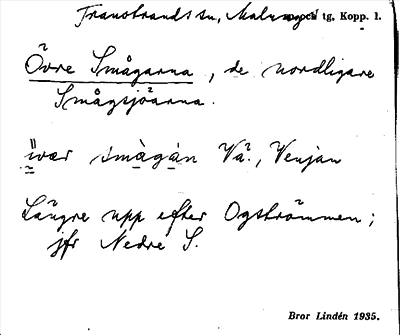 Transtrands sn, Malungs och tg, Kopp. l.
Övre Smågarna, de nordligare
Smågsjöarna.
ïvær smàgàn Vå., Venjan
Längre upp efter Ogströmmen;
jfr Nedre S.
Bror Lindén 1935.